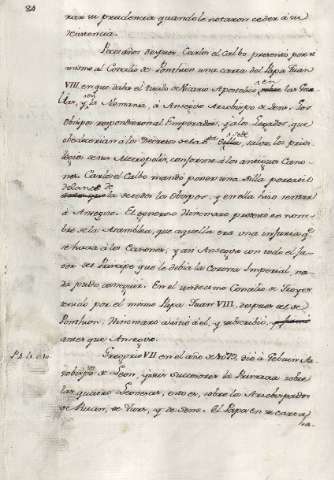 84
rar su prudencia quando le notaron ceder à su
resistencia.
Pocos dias despues Carlos el Calbo presentó por si
mismo al Concilio de Ponthion una carta del Papa Juan
VIII. en que daba el titulo de Vicario Apostolico en las Ga-
lias, y la Alemania, à Ansegiso Arzobispo de Sens. Los
Obispos respondieron al Emperador, y à los Legados, que
obedecerian à los Decretos de la Sta. Sede, salvos los privi-
legios de sus Metropolis, conforme à los antiguos Cano-
nes. Carlos el Calbo mandó poner una silla portatil
delante de
la de todos los Obispos, y en ella hizo sentar
à Ansegiso. El generoso Hincmaro protestó en nom-
bre de la Asamblea, que aquella era una injuria qe.
se hacia à los Canones, y asi Ansegiso con todo el fa-
vor del Principe que le debia la Corona Imperial, na-
da pudo conseguir. En el Concilio de Troyes
tenido por el mismo Papa Juan VIII, despues del de
Ponthion, Hincmaro asistió à el, y subscribió
antes que Ansegiso.
Gregorio VII en el año de 1079 dió à Gebuin Ar-
zobispo de Leon, y sus succesores la Primacia sobre
las quatro Leonesas, esto es, sobre los Arzobispados
de Ruan, de Tours, y de Sens. El Papa en su carta